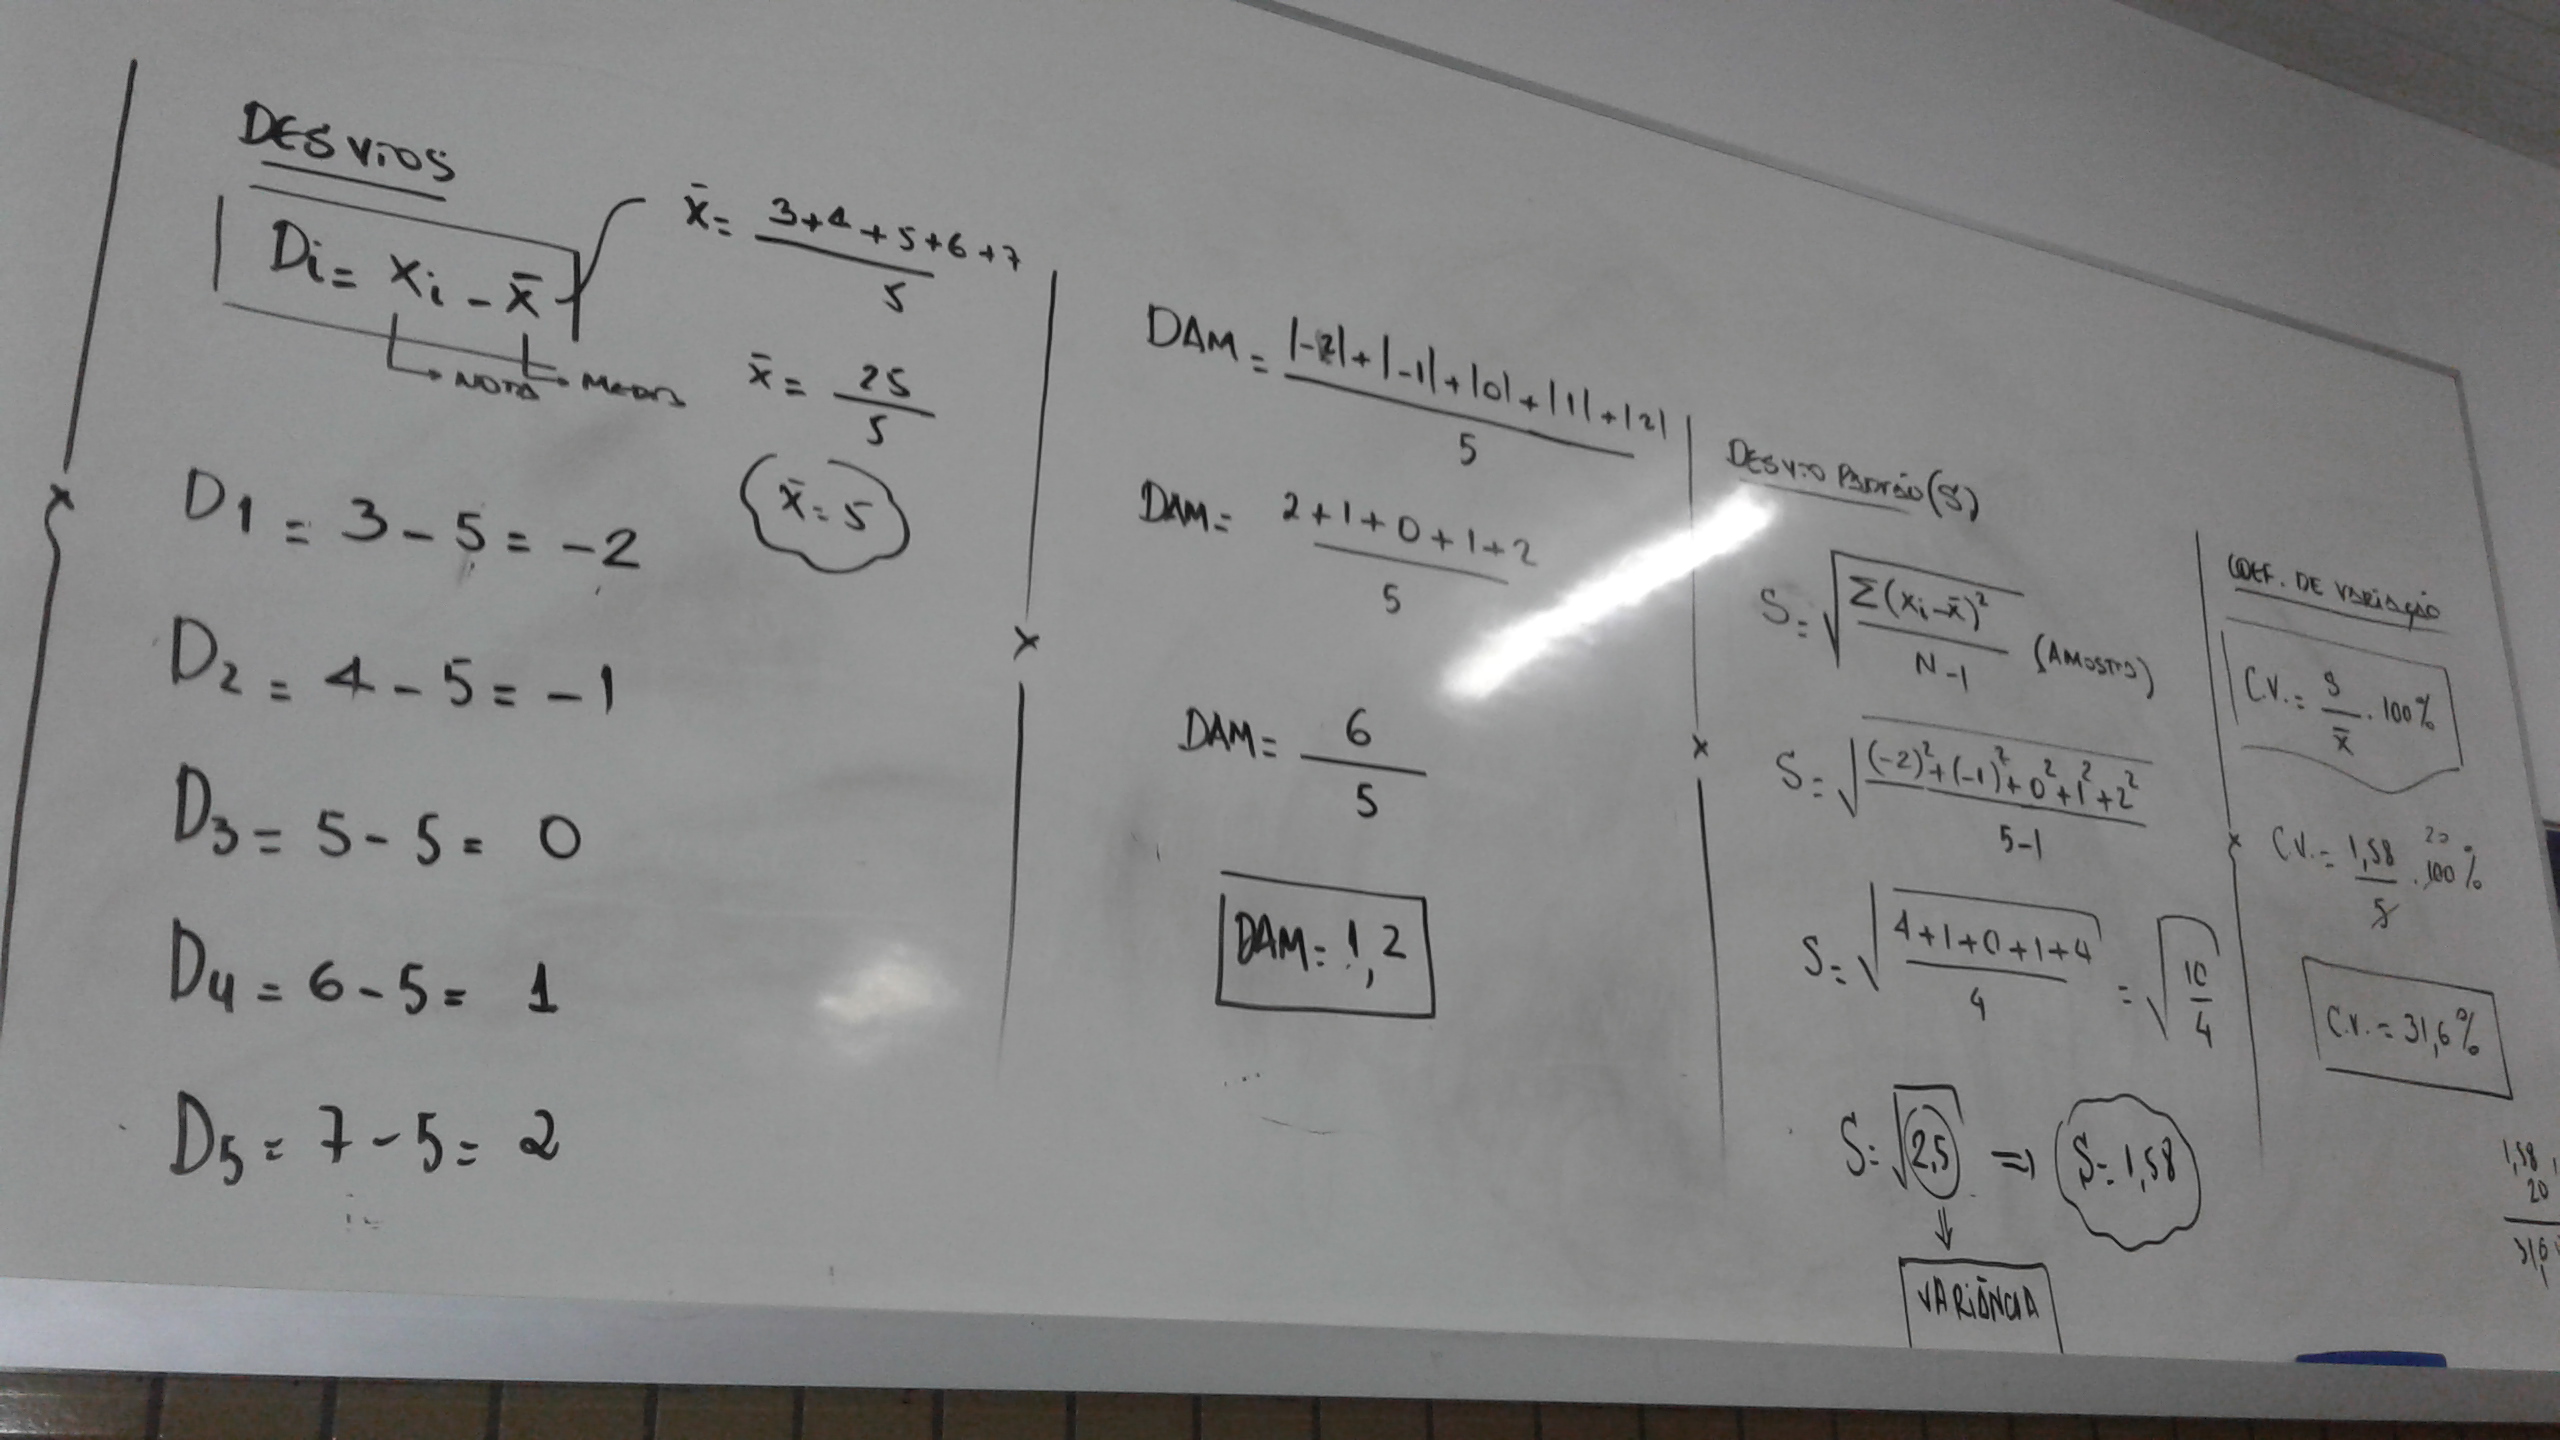 DESVIOS
Di = xi - x̄
NOTA MEDIA
x̄ = 3+4+5+6+7 / 5
x̄ = 25 / 5
x̄ = 5
D1 = 3 - 5 = -2
D2 = 4 - 5 = -1
D3 = 5 - 5 = 0
D4 = 6 - 5 = 1
D5 = 7 - 5 = 2
DAM = |-2|+|-1|+|0|+|1|+|2| / 5
DAM = 2+1+0+1+2 / 5
DAM = 6 / 5
DAM = 1,2
DESVIO PADRÃO (S)
S = √(Σ(xi - x̄)² / N-1) (AMOSTRA)
S = √((-2)²+(-1)²+0²+1²+2² / 5-1)
S = √(4+1+0+1+4 / 4) = √(10 / 4)
S = √2,5 ⇒ S = 1,58
⇓
VARIÂNCIA
COEF. DE VARIAÇÃO
C.V. = S / x̄ . 100%
20
C.V. = 1,58 / 5 . 100%
C.V. = 31,6%
1,58
20